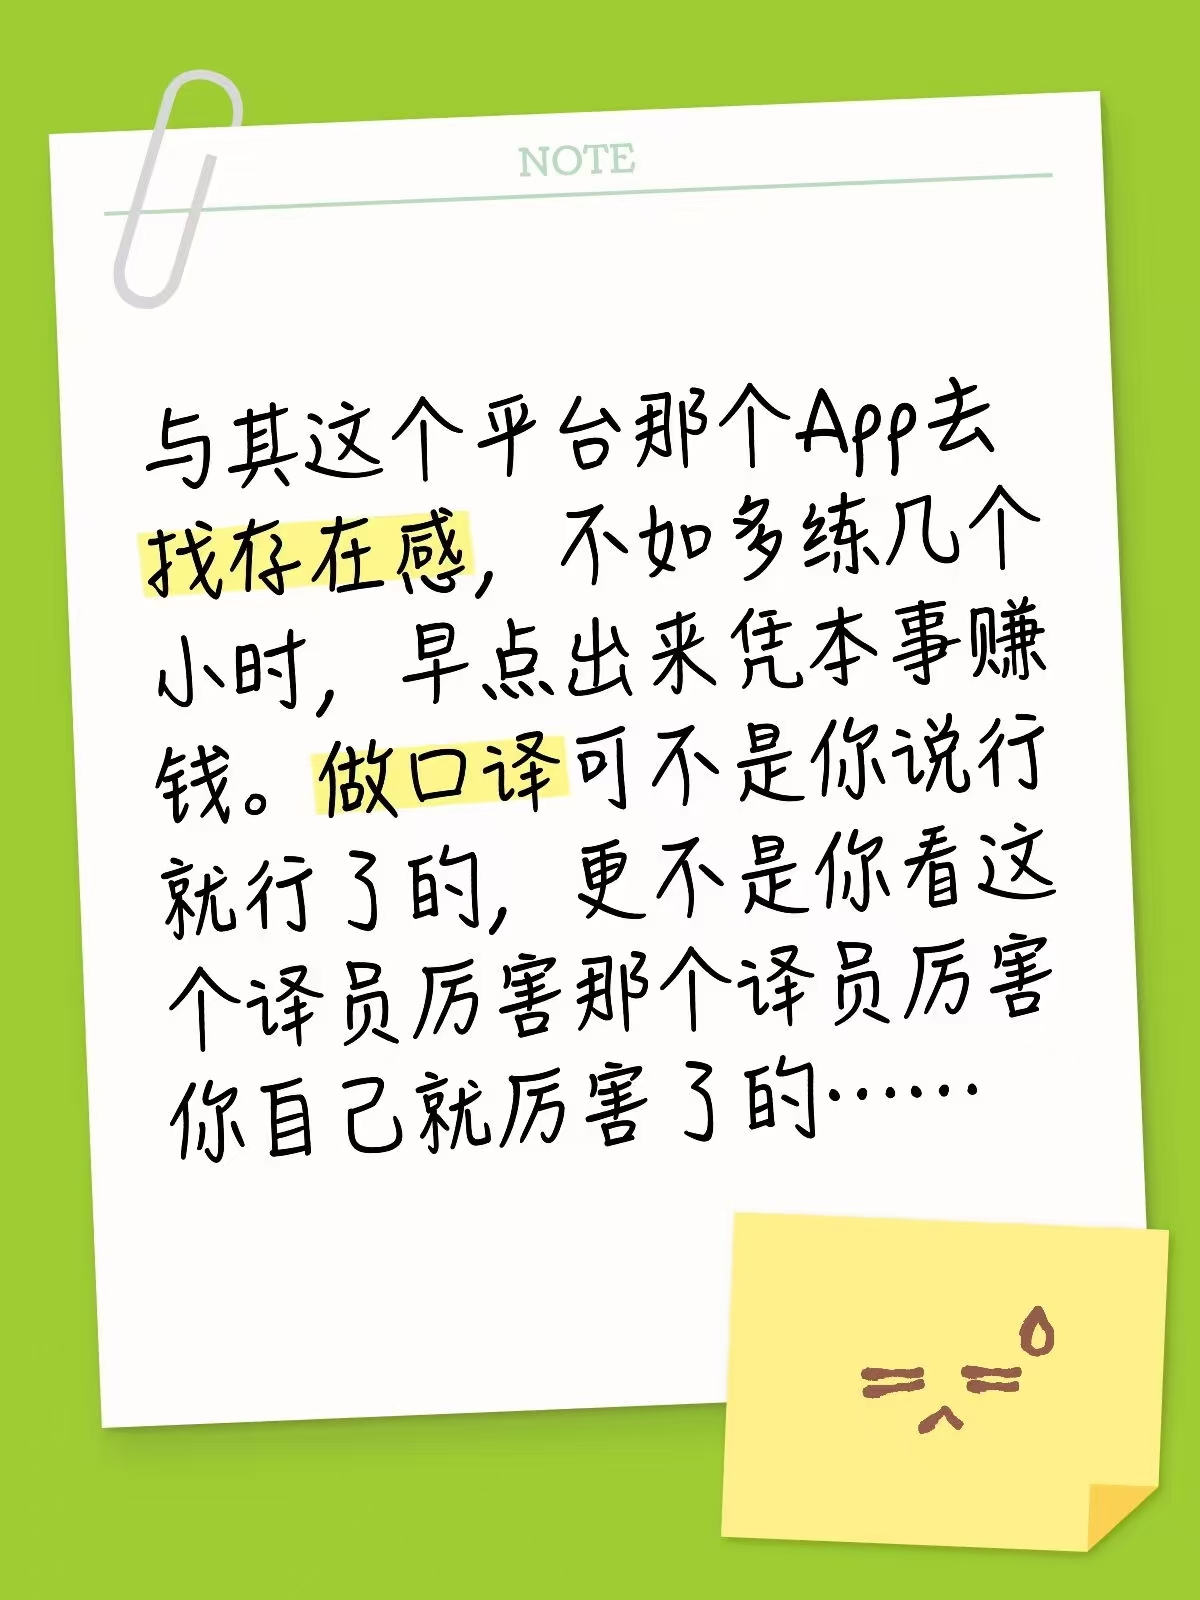 NOTE
与其这个平台那个App去
找存在感，不如多练几个
小时，早点出来凭本事赚
钱。做口译可不是你说行
就行了的，更不是你看这
个译员厉害那个译员厉害
你自己就厉害了的……